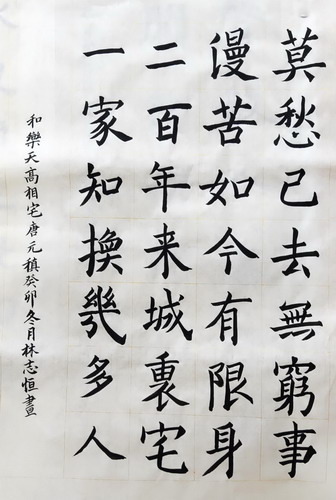 莫愁已去無窮事
漫苦如今有限身
二百年来城裏宅
一家知換幾多人
和樂天高相宅唐元稹癸卯冬月林志恒書